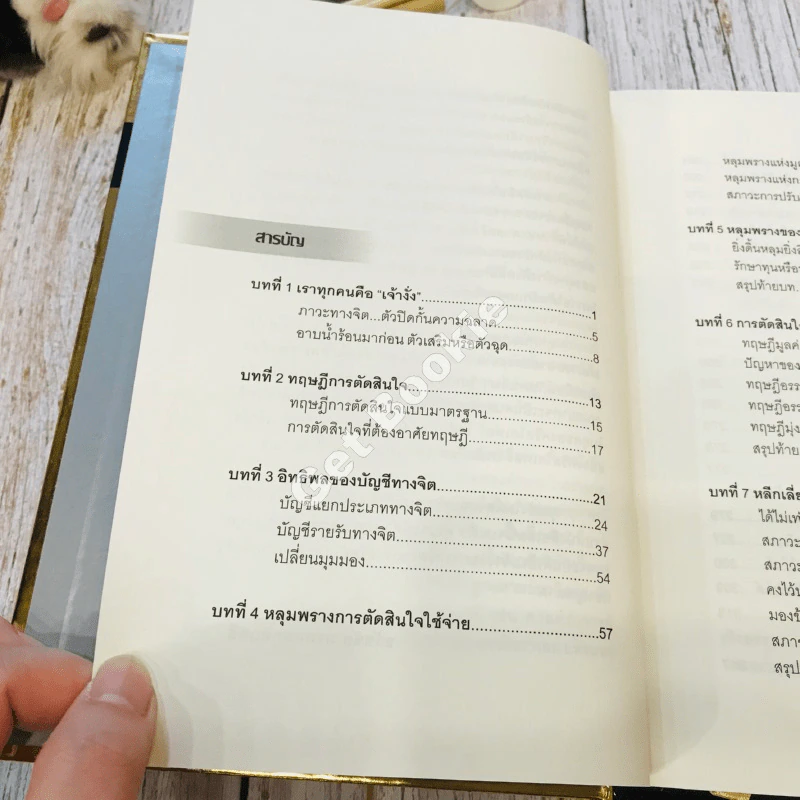 สารบัญ
บทที่ 1 เราทุกคนคือ "เจ้างั่ง"....................................1
ภาวะทางจิต...ตัวปิดกั้นความฉลาด....................5
อาบน้ำร้อนมาก่อน ตัวเสริมหรือตัวฉุด..................8
บทที่ 2 ทฤษฎีการตัดสินใจ....................................13
ทฤษฎีการตัดสินใจแบบมาตรฐาน......................15
การตัดสินใจที่ต้องอาศัยทฤษฎี.........................17
บทที่ 3 อิทธิพลของบัญชีทางจิต...............................21
บัญชีแยกประเภททางจิต................................24
บัญชีรายรับทางจิต.......................................37
เปลี่ยนมุมมอง.............................................54
บทที่ 4 หลุมพรางการตัดสินใจใช้จ่าย.........................57
หลุมพรางแห่งมู
หลุมพรางแห่งก
สภาวะการปรับ
บทที่ 5 หลุมพรางของ
ยิ่งดิ้นหลุมยิ่ง
รักษาทุนหรือ
สรุปท้ายบท.
บทที่ 6 การตัดสินใ
ทฤษฎีมูลค่
ปัญหาของ
ทฤษฎีอรร
ทฤษฎีอรร
ทฤษฎีมุ่ง
สรุปท้าย
บทที่ 7 หลีกเลี่ย
ได้ไม่เท่
สภาวะ
สภาวะ
คงไว้
มองข้
สภา
สรุป
Get Bookie